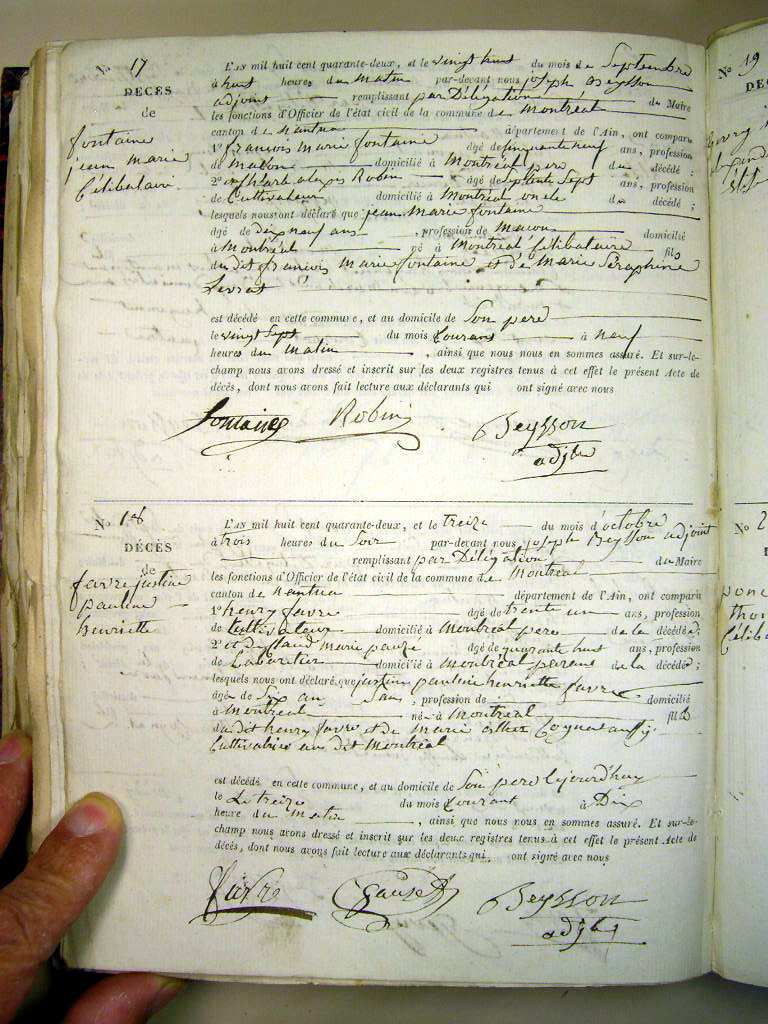 No 17
DÉCÈS
de
fontaine
jean marie
Célibataire
L'AN mil huit cent quarante-deux, et le vingt huit du mois de Septembre
à huit heures du Matin par-devant nous joseph Beysson
adjoint remplissant par Délégation du Maire
les fonctions d'Officier de l'état civil de la commune de Montréal
canton de nantua département de l'Ain, ont comparu
1º françois marie fontaine âgé de cinquante neuf ans, profession
de Maçon domicilié à Montréal pere du décédé ;
2º alexis Robin âgé de Septente Sept ans, profession
de Cultivateur domicilié à Montréal oncle du décédé ;
lesquels nous ont déclaré que jean Marie fontaine
âgé de dix neuf ans , profession de Macon domicilié
à Montréal né à Montréal Celibataire fils
du dit francois Marie fontaine et de Marie Séraphine
Levrat
est décédé en cette commune, et au domicile de Son pere
le vingt Sept du mois Courant à neuf
heures du Matin , ainsi que nous nous en sommes assuré. Et sur-le-
champ nous avons dressé et inscrit sur les deux registres tenus à cet effet le présent Acte de
décès, dont nous avons fait lecture aux déclarants qui ont signé avec nous
Fontaine Robin Beysson
adjt
No 18
DÉCÈS
de
favre justine
pauline
henriette
L'AN mil huit cent quarante-deux, et le treize du mois d'octobre
à trois heures du Soir par-devant nous joseph Beysson adjoint
remplissant par Délégation du Maire
les fonctions d'Officier de l'état civil de la commune de Montréal
canton de nantua département de l'Ain, ont comparu
1º henry favre âgé de trente un ans, profession
de Cultivateur domicilié à Montréal pere de la décédée ;
2º et Claud marie âgé de quarante huit ans, profession
de Cabaretier domicilié à Montréal parent de la décédée ;
lesquels nous ont déclaré que justine pauline henriette favre
âgée de Six ans , profession de domicilié
à Montréal née à Montréal fille
du dit henry favre et de Marie
Cultivatrice au dit Montréal
est décédé en cette commune, et au domicile de Son pere
le treize du mois Courant à Dix
heure du Matin , ainsi que nous nous en sommes assuré. Et sur-le-
champ nous avons dressé et inscrit sur les deux registres tenus à cet effet le présent Acte de
décès, dont nous avons fait lecture aux déclarants qui, ont signé avec nous
Favre Beysson
adjt
No 19
No 2